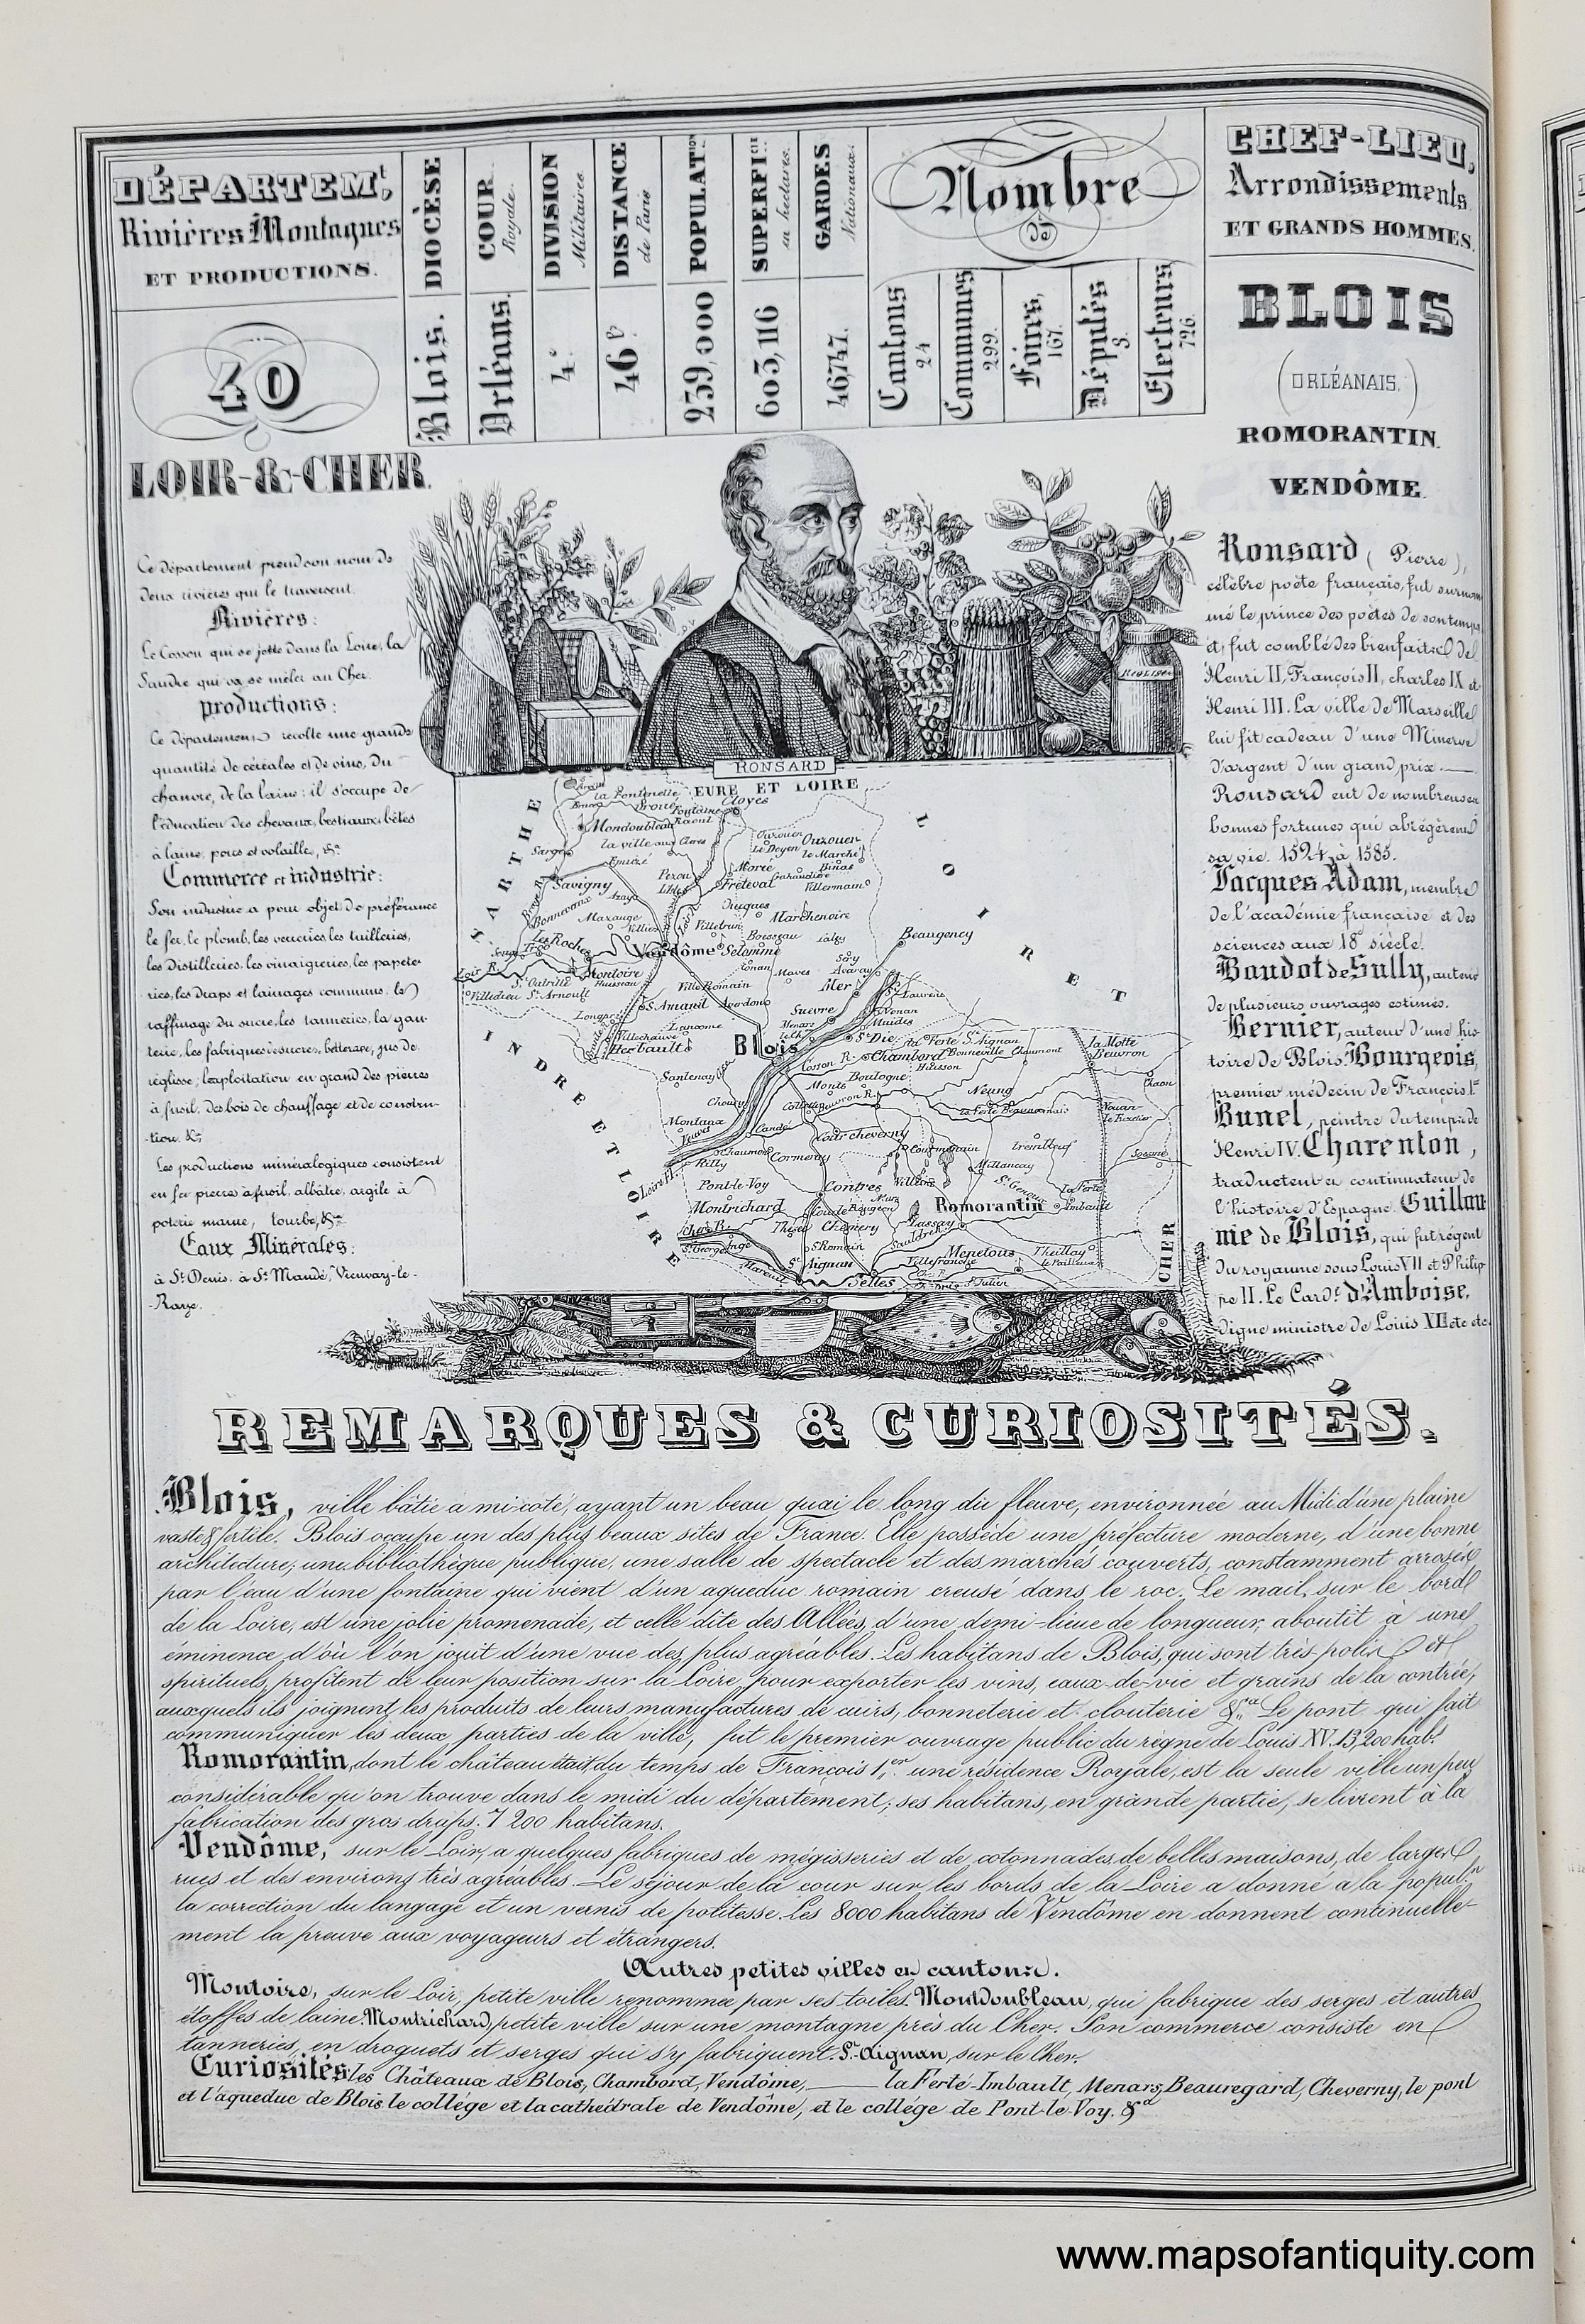 DÉPARTEMt,
Rivières Montagnes
ET PRODUCTIONS.
DIOCÈSE
Blois.
COUR Royale.
Orléans.
DIVISION Militaires
4e.
DISTANCE de Paris
46 l
POPULATion
239,000
SUPERFIcie en hectares.
603,116
GARDES Nationaux.
46,747.
Nombre
de
Cantons 24
Communes 299.
Foires, 167.
Députés 3.
Electeurs 726.
CHEF-LIEU,
Arrondissements
ET GRANDS HOMMES.
40
LOIR-&-CHER.
Ce département prend son nom de
deux rivières qui le traversent.
Rivières:
Le Cosson qui se jette dans la Loire, la
Saudre qui va se mêler au Cher.
productions:
Ce département récolte une grande
quantité de céréales et de vins, du
chanvre, de la laine: il s'occupe de
l'éducation des chevaux, bestiaux bêtes
à laine, porcs et volaille, &a.
Commerce et industrie:
Son industrie a pour objet de préférence
le fer, le plomb, les verreries, les tuilleries,
les distilleries, les vinaigreries, les papete-
ries, les draps et lainages communs, le
raffinage du sucre, les tanneries, la gan-
terie, les fabriques de sucre, betterave, jus de
réglisse; l'exploitation en grand des pierres
à fusil, des bois de chauffage et de constru-
tion. &c
Les productions minéralogiques consistent
en fer pierres à fusil, albâtre, argile à
poterie marne, tourbe, &a
Eaux Minérales:
à St. Denis, à St. Mandé, Vieuvay-le-
-Raye.
BLOIS
(ORLÉANAIS.)
ROMORANTIN.
VENDÔME.
Ronsard ( Pierre ),
célèbre poète français, fut surnom
mé le prince des poètes de son temps,
et, fut comblé des bienfaits de
Henri II, François II, charles IX et
Henri III. La ville de Marseille
lui fit cadeau d'une Minerve
d'argent d'un grand prix.
Ronsard eut de nombreuses
bonnes fortunes qui abrégèrent
sa vie. 1524, à 1585.
Jacques Adam, membre
de l'académie française et des
sciences aux 18e siècle.
Baudot de Sully, auteur
de plusieurs ouvrages estimés.
Bernier, auteur d'une his-
toire de Blois. Bourgeois,
premier médecin de François 1er
Bunel, peintre du temps de
Henri IV. Charenton,
traducteur et continuateur de
l'histoire d'Espagne. Guillau
me de Blois, qui fut régent
du royaume sous Louis VII et Philip
pe II. Le Card.l d'Amboise,
digne ministre de Louis XII etc etc.
REGLISSE
RONSARD
EURE ET LOIRE
SARTHE
LOIRET
INDRE ET LOIRE
CHER
la Fontenelle
Droué
Cloyes
Fontaine Raoul
Mondoubleau
la ville aux Clercs
Sargé
Epuizé
Ouzouen
Le Doyen
Ouzouen
le Marché
Binas
Morée
Fréteval
Villermain
Pezou
Lisle
Savigny
Azay
Bonneveau
Mazange
Villiers
Marchenoire
Villetrun
Les Roches
Vendôme
Selomme
Beaugency
Montoire
Loir R.
St. Outrille
Houssay
Villedieu
St. Arnoult
Conan
Maves
Séry
Avaray
Mer
St. Laurent
Ville Romain
St. Amand
Averdon
Suèvre
Menars
Nonan
Muides
Longpré
Lancome
Villechauve
Herbault
Blois
St. Dié
la Ferté St. Aignan
Cosson R.
Chambord
Bonneville
Chaumont
Huisson
la Motte
Beuvron
Santenay
Monts
Boulogne
Neung
Chaon
Chouzy
Beuvron R.
la Ferté Beauvarnais
Nouan
le Fuzelier
Montaux
Veuves
Candé
Courcheverny
Chaumont
Rilly
Cormeray
Courmenain
Tremblevif
Soesme
Millancay
Loire Fl.
Pont-le-Voy
Contres
St. Genoux
la Ferté
Imbault
Montrichard
Romorantin
Cher R.
Thésée
Chemery
Lassay
St. George
Angé
St. Romain
Saudre R.
Menetous
Theillay
le Pailleux
Mareuil
St. Aignan
Villefranche
Selles
St. Julien
REMARQUES & CURIOSITÉS.
Blois, ville bâtie à mi-côté, ayant un beau quai le long du fleuve, environnée au Midi d'une plaine
vaste & fertile. Blois occupe un des plus beaux sites de France. Elle possède une préfecture moderne, d'une bonne
architecture; une bibliothèque publique, une salle de spectacle et des marchés couverts, constamment arrosés
par l'eau d'une fontaine qui vient d'un aqueduc romain creusé dans le roc. Le mail, sur le bord
de la Loire, est une jolie promenade, et celle dite des Allées, d'une demi-lieue de longueur, aboutit à une
éminence d'où l'on jouit d'une vue des plus agréables. Les habitans de Blois, qui sont très-polis et
spirituels, profitent de leur position sur la Loire, pour exporter les vins, eaux-de-vie et grains de la contrée,
auxquels ils joignent les produits de leurs manufactures de cuirs, bonneterie et clouterie &a. Le pont qui fait
communiquer les deux parties de la ville, fut le premier ouvrage public du règne de Louis XV. 13,200 hab.s
Romorantin, dont le château était, du temps de François 1er une résidence Royale, est la seule ville un peu
considérable qu'on trouve dans le midi du département; ses habitans, en grande partie, se livrent à la
fabrication des gros draps. 7 200 habitans.
Vendôme, sur le Loir, a quelques fabriques de mégisseries et de cotonnades, de belles maisons, de larges
rues et des environs très agréables. Le séjour de la cour sur les bords de la Loire a donné à la popul.n
la correction du langage et un vernis de politesse. Les 8000 habitans de Vendôme en donnent continuelle-
ment la preuve aux voyageurs et étrangers.
Autres petites villes et cantons.
Montoire, sur le Loir, petite ville renommée par ses toiles. Montdoubleau, qui fabrique des serges et autres
étoffes de laine. Montrichard, petite ville sur une montagne près du Cher. Son commerce consiste en
tanneries, en droguets et serges qui s'y fabriquent. St. Aignan, sur le Cher.
Curiosités. les Châteaux de Blois, Chambord, Vendôme, la Ferté-Imbault, Menars, Beauregard, Cheverny, le pont
et l'aqueduc de Blois le collége et la cathédrale de Vendôme, et le collége de Pont-le-Voy. &a
www.mapsofantiquity.com